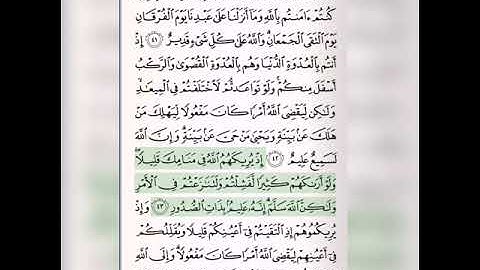 كُنتُمْ ءَامَنتُم بِٱللَّهِ وَمَآ أَنزَلْنَا عَلَىٰ عَبْدِنَا يَوْمَ ٱلْفُرْقَانِ
يَوْمَ ٱلْتَقَى ٱلْجَمْعَانِ ۗ وَٱللَّهُ عَلَىٰ كُلِّ شَىْءٍ قَدِيرٌ ٤١ إِذْ
أَنتُم بِٱلْعُدْوَةِ ٱلدُّنْيَا وَهُم بِٱلْعُدْوَةِ ٱلْقُصْوَىٰ وَٱلرَّكْبُ
أَسْفَلَ مِنكُمْ ۚ وَلَوْ تَوَاعَدتُّمْ لَٱخْتَلَفْتُمْ فِى ٱلْمِيعَـٰدِ ۙ
وَلَـٰكِن لِّيَقْضِىَ ٱللَّهُ أَمْرًا كَانَ مَفْعُولًا لِّيَهْلِكَ مَنْ
هَلَكَ عَنۢ بَيِّنَةٍ وَيَحْيَىٰ مَنْ حَىَّ عَنۢ بَيِّنَةٍ ۗ وَإِنَّ ٱللَّهَ
لَسَمِيعٌ عَلِيمٌ ٤٢ إِذْ يُرِيكَهُمُ ٱللَّهُ فِى مَنَامِكَ قَلِيلًا ۖ
وَلَوْ أَرَىٰكَهُمْ كَثِيرًا لَّفَشِلْتُمْ وَلَتَنَـٰزَعْتُمْ فِى ٱلْأَمْرِ
وَلَـٰكِنَّ ٱللَّهَ سَلَّمَ ۗ إِنَّهُۥ عَلِيمٌۢ بِذَاتِ ٱلصُّدُورِ ٤٣ وَإِذْ
يُرِيكُمُوهُمْ إِذِ ٱلْتَقَيْتُمْ فِىٓ أَعْيُنِكُمْ قَلِيلًا وَيُقَلِّلُكُمْ
فِىٓ أَعْيُنِهِمْ لِيَقْضِىَ ٱللَّهُ أَمْرًا كَانَ مَفْعُولًا ۗ وَإِلَى ٱللَّهِ